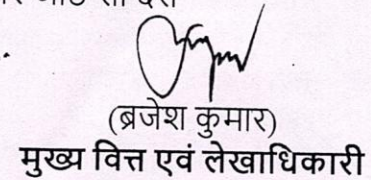 (ब्रजेश कुमार)
मुख्य वित्त एवं लेखाधिकारी